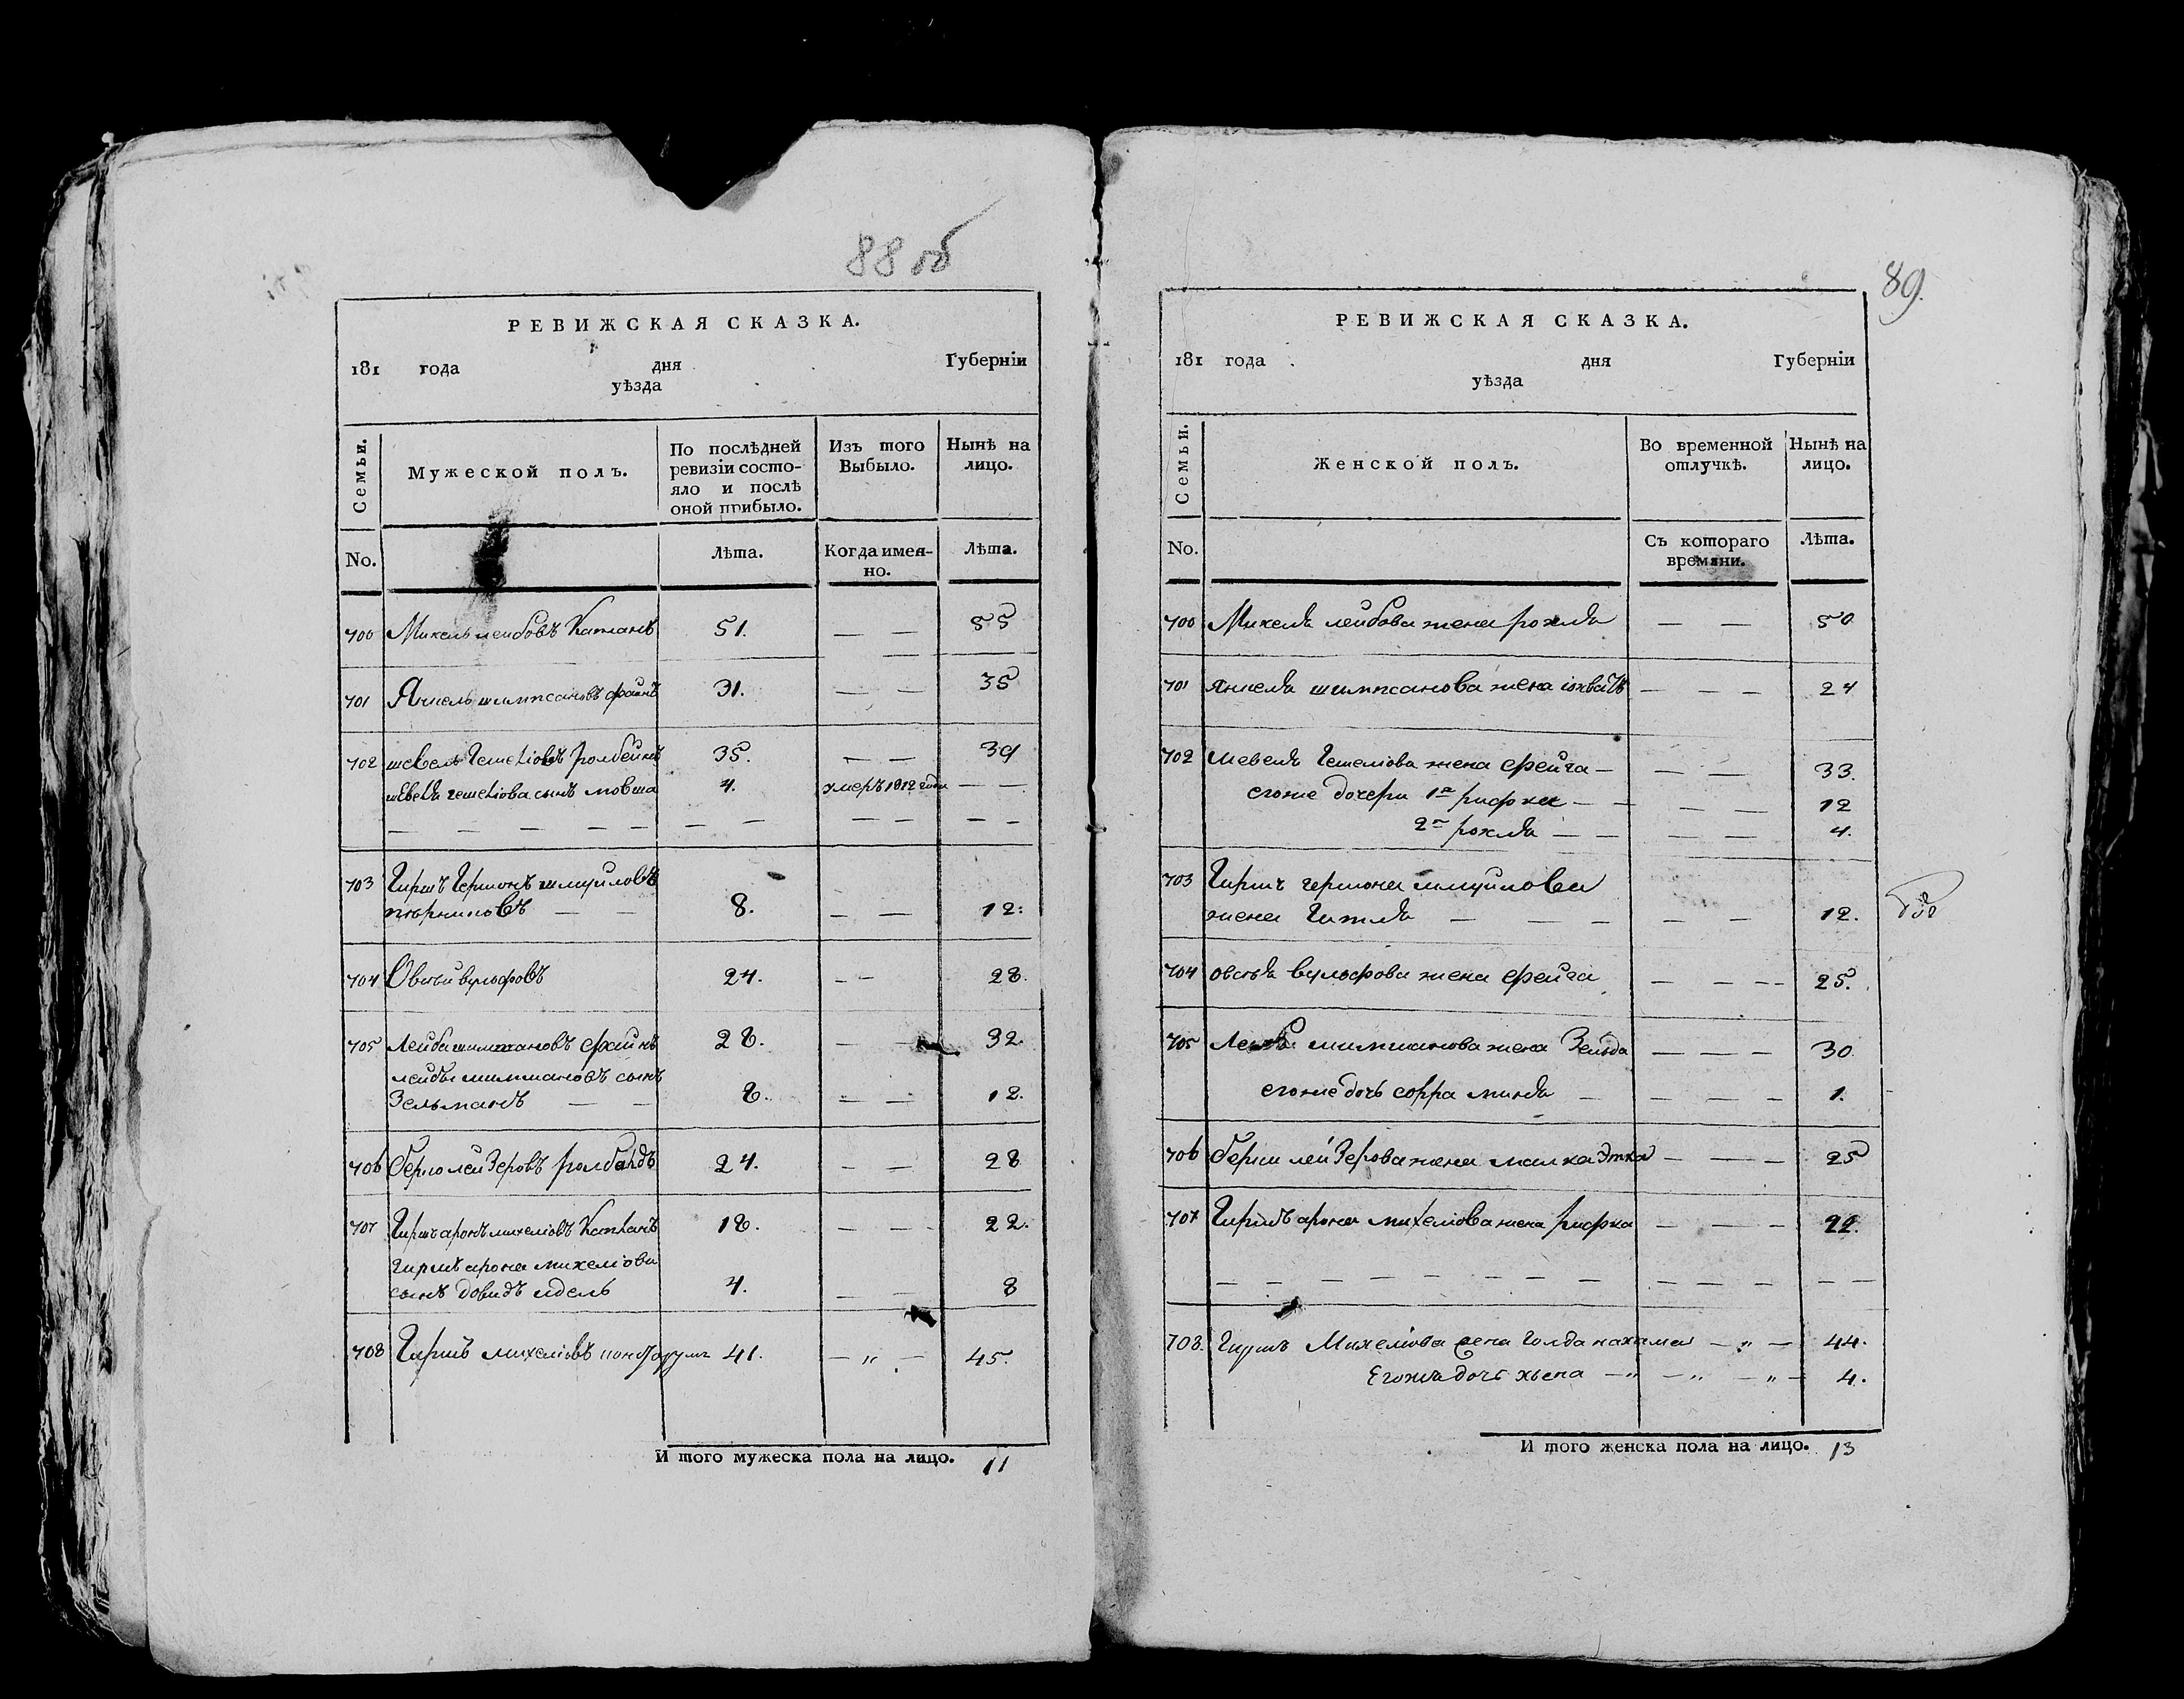 88 об
РЕВИЖСКАЯ СКАЗКА.
181 года дня Губерніи
уѣзда
Семьи.
Мужеской полъ.
По послѣдней ревизіи состо-
яло и послѣ
оной прибыло.
Изъ того
Выбыло.
Нынѣ на
лицо.
No.
Лѣта.
Когда имен-
но.
Лѣта.
700 Михель леибовъ Капланъ 51. — — 55
701 Янкель шимшановъ фаинъ 31. — — 35
702 шевель Гешеліовъ 35. — — 39
шевеля гешеліова сынъ мовша 4. умеръ 1812 года — —
703 Гиршъ Гершонъ шмуиловъ
8. — — 12.
704 Овсѣй вульфовъ 24. — — 28.
705 Леиба шимшановъ фаинъ 28. — — 32.
леибы шимшановъ сынъ
Зельманъ — — 8. — — 12.
706 берко леиЗеровъ 24. — — 28
707 Гиршъ аронъ михеліовъ Капланъ 18. — — 22.
гиршъ арона михеліова
сынъ довидъ идель 4. — — 8
708 Гиршъ михеліовъ 41. — „ — 45.
И того мужеска пола на лицо. 11
89.
РЕВИЖСКАЯ СКАЗКА.
181 года дня Губерніи
уѣзда
Семьи.
Женской полъ.
Во временной
отлучкѣ.
Нынѣ на
лицо.
No.
Съ котораго
времяни.
Лѣта.
700 Михеля леибова жена рохля — — 50
701 янкеля шимшанова жена — — — 24
702 шевеля Гешеліова жена фейга — — — 33.
егоже дочери 1я рифка — — — — 12
2я рохля — — — — 4.
703 Гиршъ гершона шмуилова
жена Гитля — — — — — 12.
704 овсѣя вульфова жена фейга — — — — 25.
705 Леибы шимшанова жена Зельда — — — 30.
егоже дочь сорра миня — — — — 1.
706 берки леиЗерова жена малка Этка — — — 25
707 Гиршъ арона михеліова жена рифка — — — 22.
708. Гиршъ Михеліова жена Голда нахама — „ — 44.
Егоже дочь хьена — „ — „ — „ — 4.
И того женска пола на лицо. 13